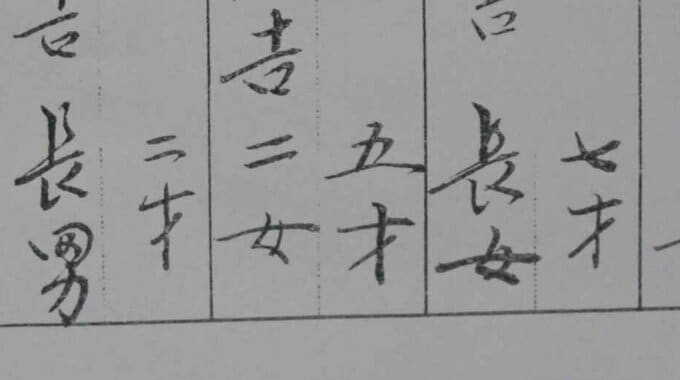 長女
七才
吉二女
五才
長男
二才